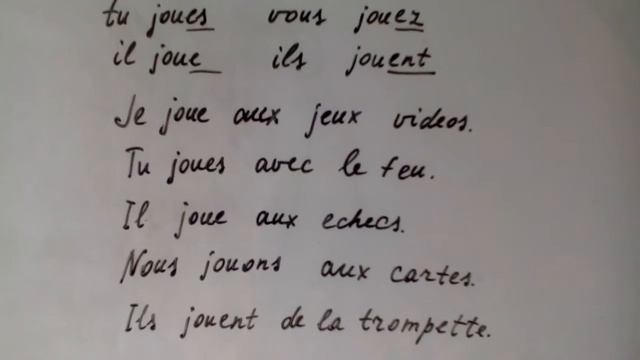 tu joues vous jouez
il joue ils jouent
Je joue aux jeux videos.
Tu joues avec le feu.
Il joue aux echecs.
Nous jouons aux cartes.
Ils jouent de la trompette.